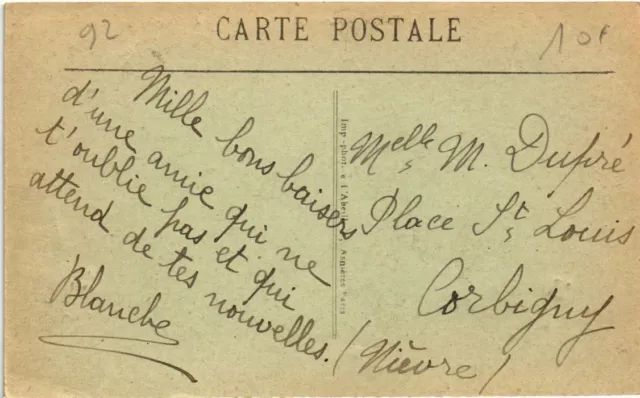 92
CARTE POSTALE
10f
Mille bons baisers
d'une amie qui ne
t'oublie pas et qui
attend de tes nouvelles.
Blanche
Imp.-phot. Asnières Paris
Melle M. Dupré
Place St Louis
Corbigny
(Nièvre)